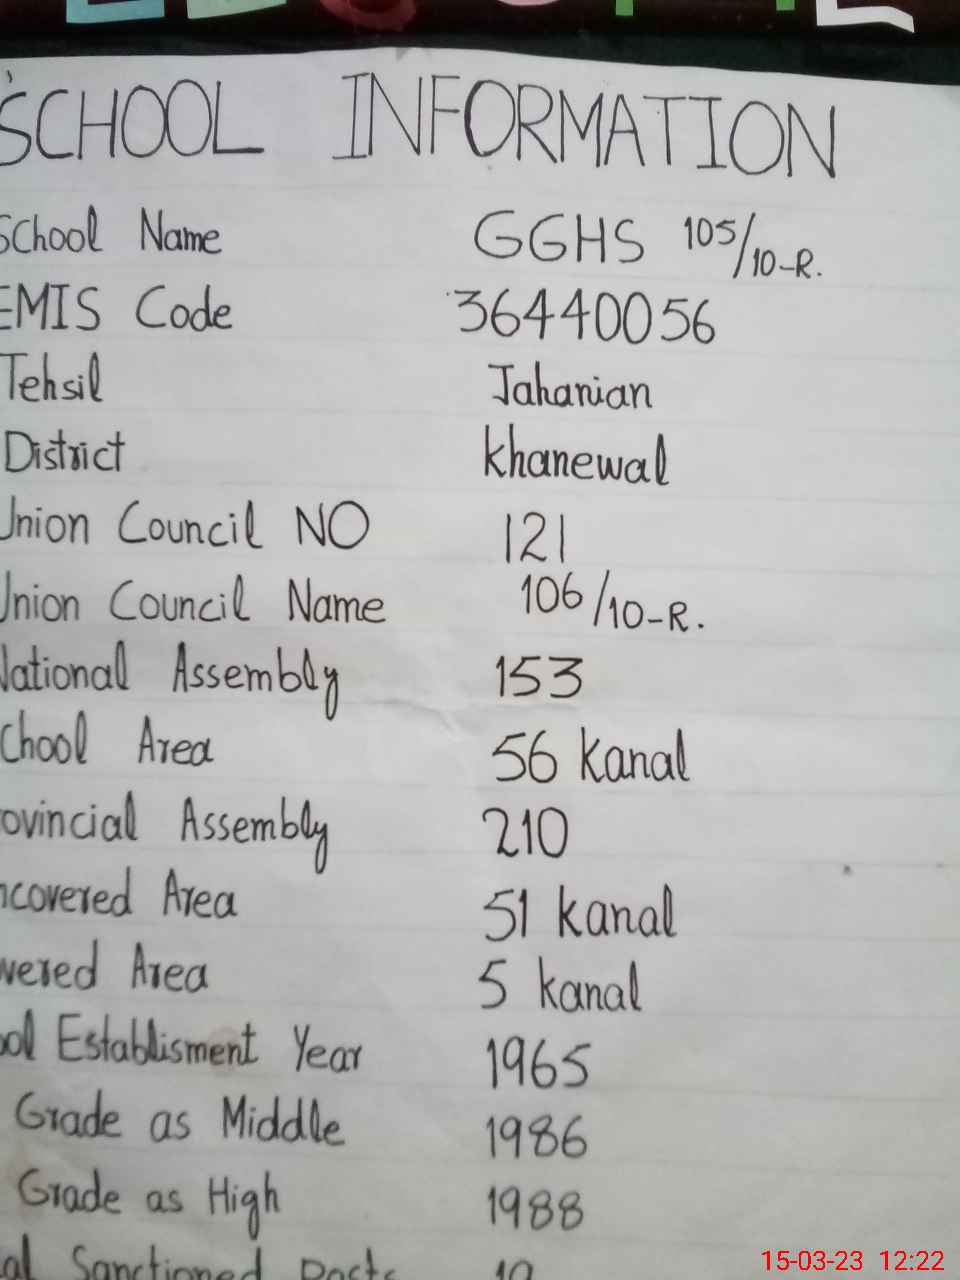 SCHOOL INFORMATION
School Name GGHS 105/10-R.
EMIS Code 36440056
Tehsil Jahanian
District khanewal
Union Council NO 121
Union Council Name 106/10-R.
National Assembly 153
chool Area 56 kanal
ovincial Assembly 210
ncovered Area 51 kanal
vered Area 5 kanal
ool Establisment Year 1965
Grade as Middle 1986
Grade as High 1988
al Sanctioned Posts
15-03-23 12:22